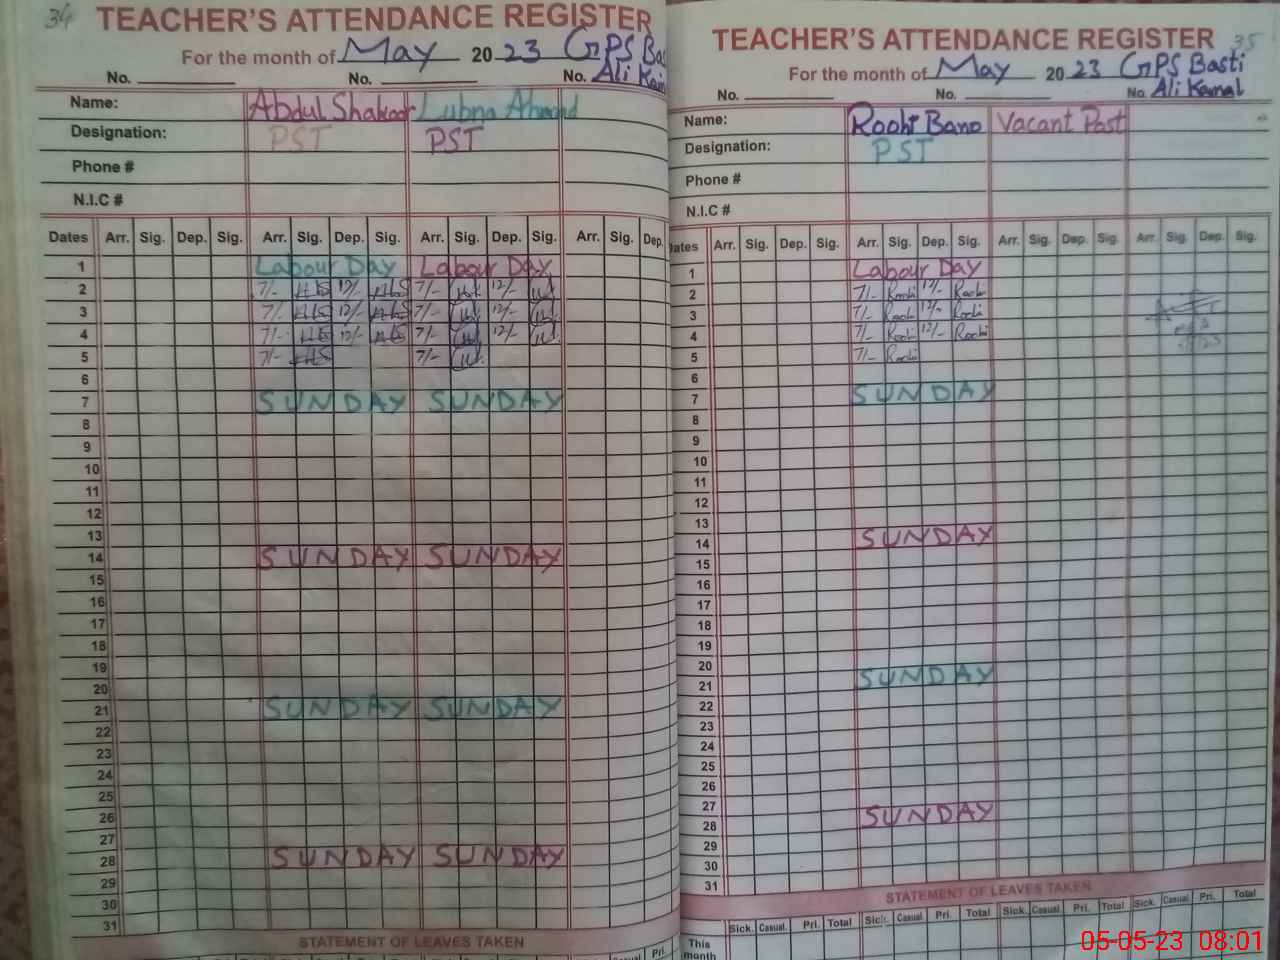 34
TEACHER'S ATTENDANCE REGISTER
For the month of May 2023 GPS Bas
No. No. No. Ali Kam
Name: Abdul Shakoor Lubna Ahmad
Designation: PST PST
Phone #
N.I.C #
Dates Arr. Sig. Dep. Sig. Arr. Sig. Dep. Sig. Arr. Sig. Dep. Sig. Arr. Sig. Dep.
1 Labour Day Labour Day
2 7/- 12/- 7/- 12/-
3 7/- 12/- 7/- 12/-
4 7/- 12/- 7/- 12/-
5 7/- 7/-
6
7 SUNDAY SUNDAY
8
9
10
11
12
13
14 SUNDAY SUNDAY
15
16
17
18
19
20
21 SUNDAY SUNDAY
22
23
24
25
26
27
28 SUNDAY SUNDAY
29
30
31
STATEMENT OF LEAVES TAKEN
Pri.
TEACHER'S ATTENDANCE REGISTER 35
For the month of May 2023 GPS Basti
No. No. No. Ali Kamal
Name: Roohi Bano Vacant Post
Designation: PST
Phone #
N.I.C #
Dates Arr. Sig. Dep. Sig. Arr. Sig. Dep. Sig. Arr. Sig. Dep. Sig. Arr. Sig. Dep. Sig.
1 Labour Day
2 7/- Roohi 12/- Roohi
3 7/- Roohi 12/- Roohi
4 7/- Roohi 12/- Roohi
5 7/- Roohi
6
7 SUNDAY
8
9
10
11
12
13
14 SUNDAY
15
16
17
18
19
20
21 SUNDAY
22
23
24
25
26
27
28 SUNDAY
29
30
31
STATEMENT OF LEAVES TAKEN
Sick. Casual Pri. Total Sick. Casual. Pri. Total Sick. Casual. Pri. Total Sick. Casual Pri. Total
This month
05-05-23 08:01